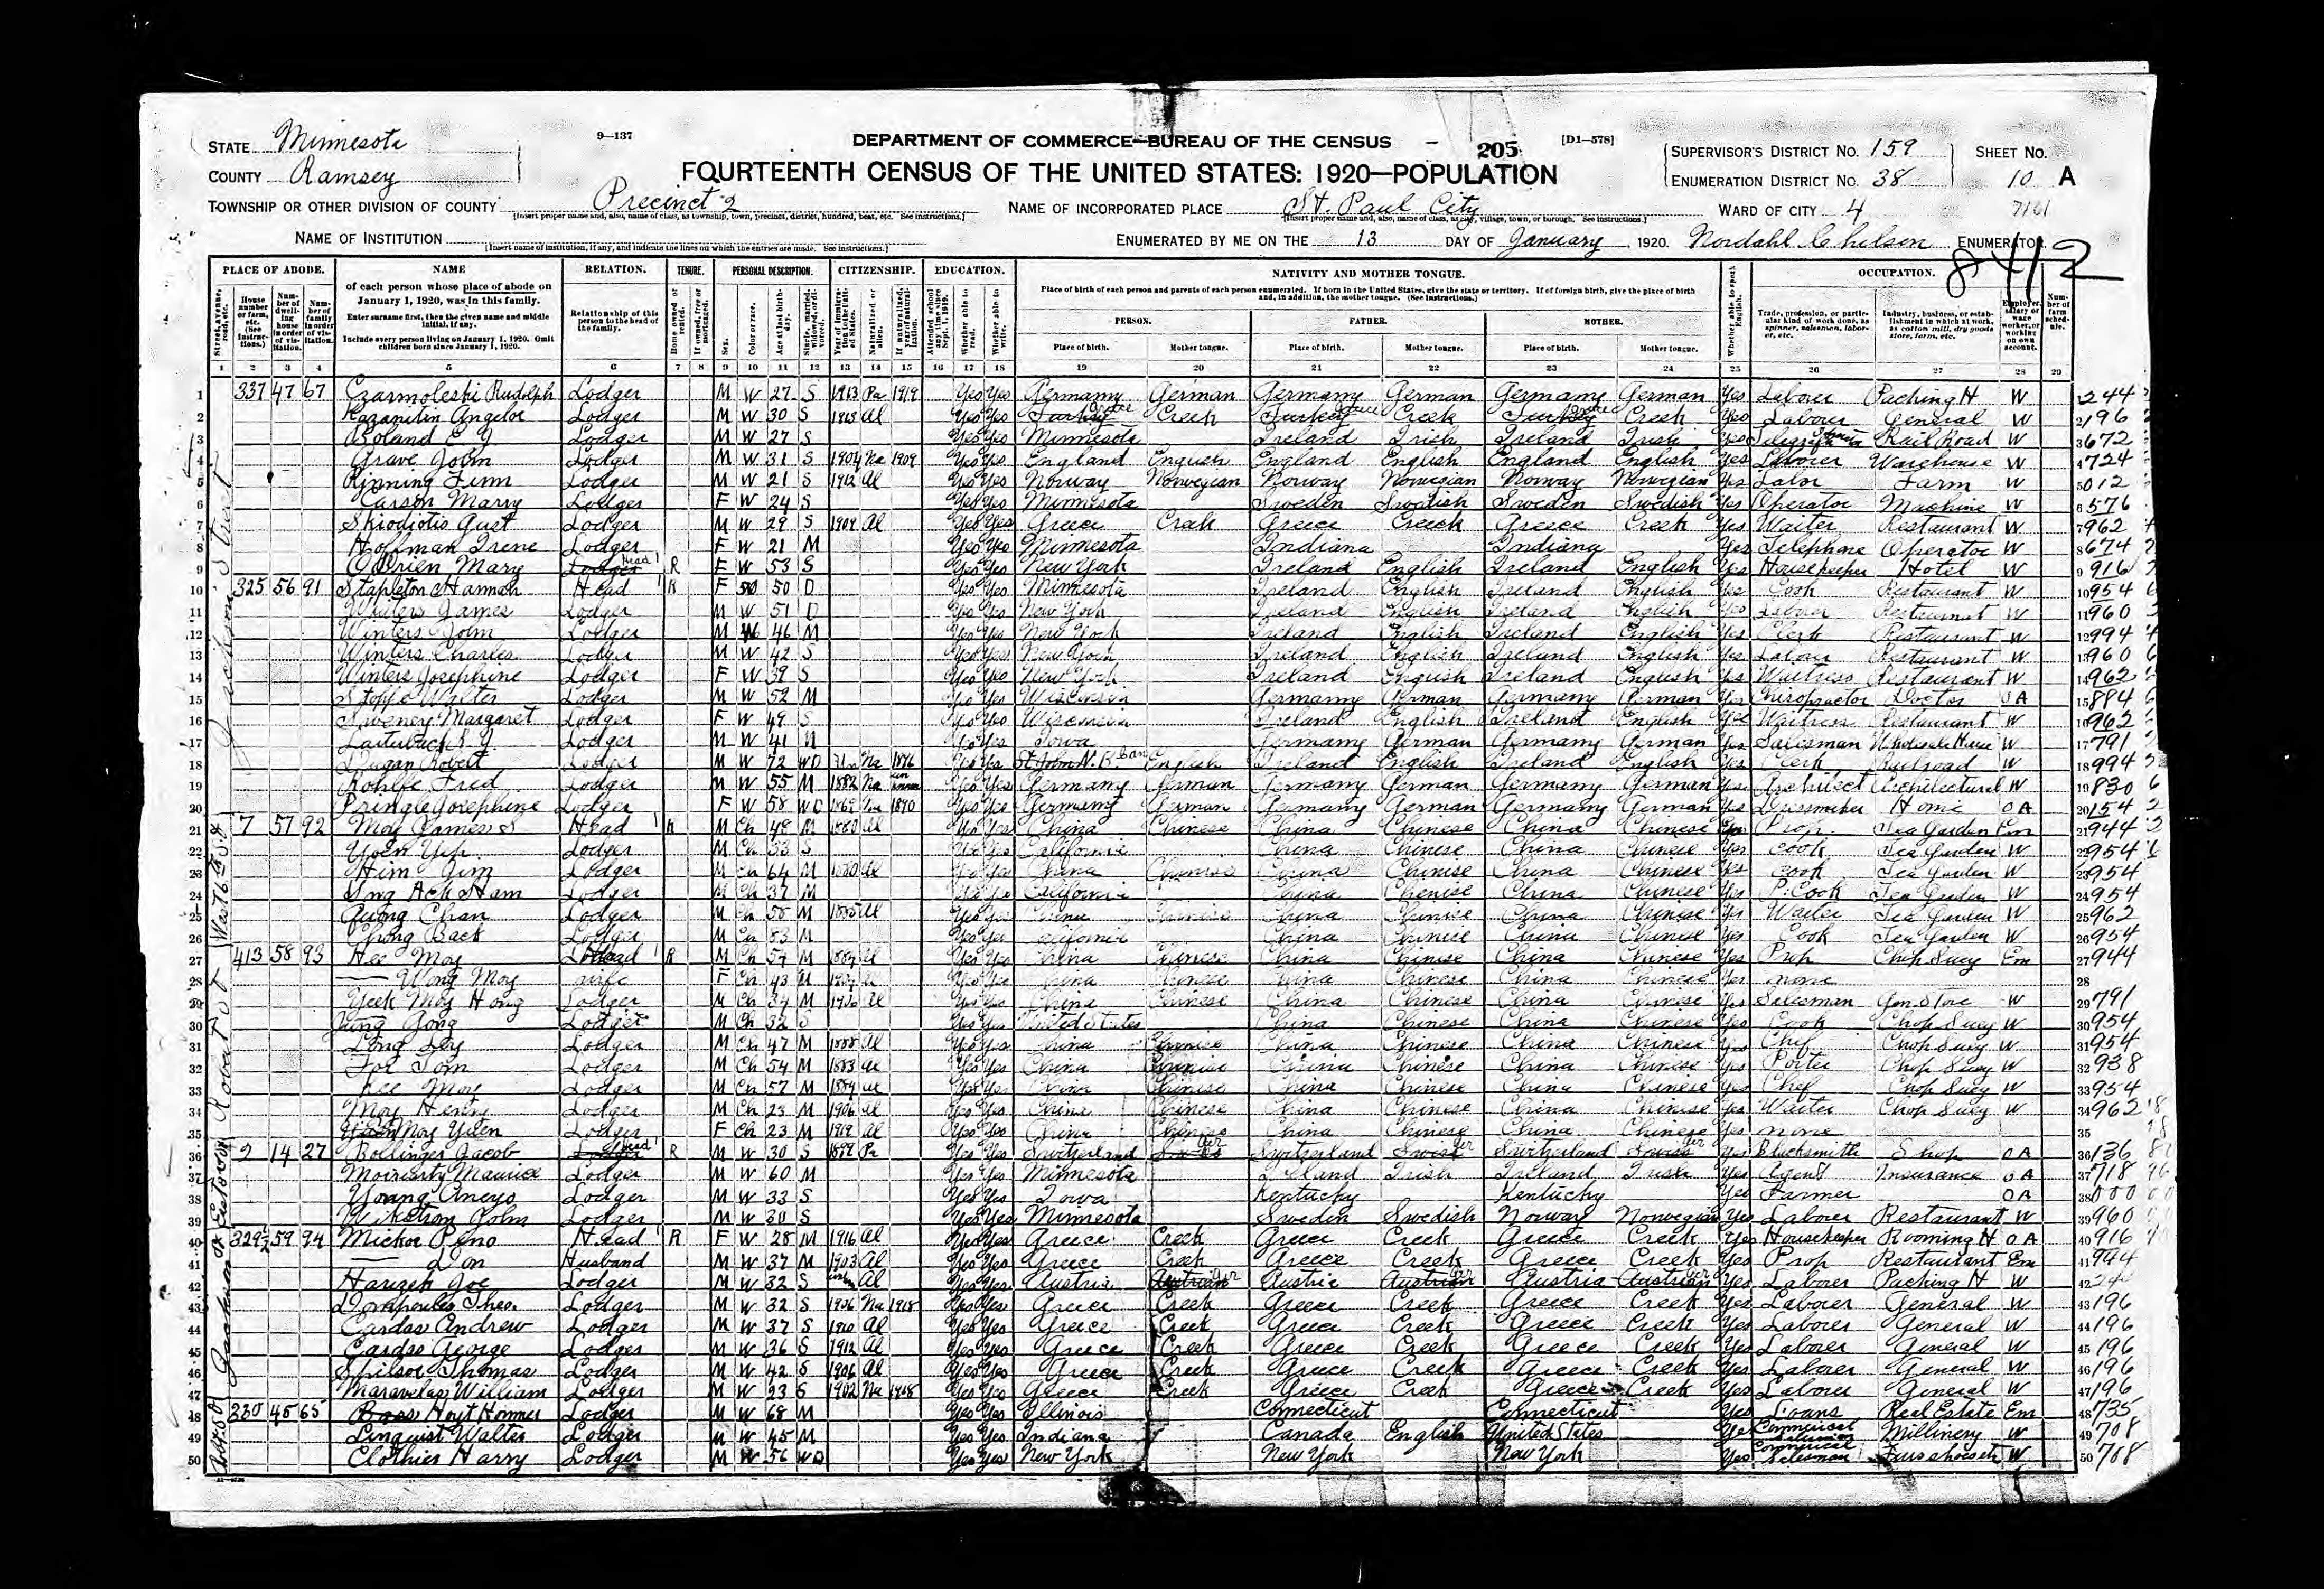 STATE Minnesota
9—137
DEPARTMENT OF COMMERCE—BUREAU OF THE CENSUS
205
[D1—578]
SUPERVISOR'S DISTRICT No. 159
SHEET No.
COUNTY Ramsey
FOURTEENTH CENSUS OF THE UNITED STATES: 1920—POPULATION
ENUMERATION DISTRICT No. 38
10 A
TOWNSHIP OR OTHER DIVISION OF COUNTY Precinct 2
[Insert proper name and, also, name of class, as township, town, precinct, district, hundred, beat, etc. See instructions.]
NAME OF INCORPORATED PLACE St. Paul City
[Insert proper name and, also, name of class, as city, village, town, or borough. See instructions.]
WARD OF CITY 4
7161
NAME OF INSTITUTION
[Insert name of institution, if any, and indicate the lines on which the entries are made. See instructions.]
ENUMERATED BY ME ON THE 13 DAY OF January, 1920. ENUMERATOR
8412
PLACE OF ABODE. NAME RELATION. TENURE. PERSONAL DESCRIPTION. CITIZENSHIP. EDUCATION. NATIVITY AND MOTHER TONGUE. OCCUPATION.
of each person whose place of abode on January 1, 1920, was in this family.
Enter surname first, then the given name and middle initial, if any.
Include every person living on January 1, 1920. Omit children born since January 1, 1920.
Relationship of this person to the head of the family.
Place of birth of each person and parents of each person enumerated. If born in the United States, give the state or territory. If of foreign birth, give the place of birth and, in addition, the mother tongue. (See instructions.)
PERSON. FATHER. MOTHER.
Place of birth. Mother tongue. Place of birth. Mother tongue. Place of birth. Mother tongue.
Trade, profession, or particular kind of work done, as spinner, salesman, laborer, etc.
Industry, business, or establishment in which at work, as cotton mill, dry goods store, farm, etc.
Employer, salary or wage worker, or working on own account.
Number of farm schedule.
1 2 3 4 5 6 7 8 9 10 11 12 13 14 15 16 17 18 19 20 21 22 23 24 25 26 27 28 29
1 337 47 67 Czarmoleski Rudolph Lodger M W 27 S 1913 Pa 1919 Yes Yes Germany German Germany German Germany German Yes Laborer Packing H W 244
2 Angelos Lodger M W 30 S Al Yes Yes Turkey Greek Turkey Greek Turkey Greek Yes Laborer General W 196
3 Boland E J Lodger M W 27 S Yes Yes Minnesota Ireland Irish Ireland Irish Yes Rail Road W 672
4 Grave John Lodger M W 31 S 1904 Na 1909 Yes Yes England English England English England English Yes Laborer Warehouse W 724
5 Rinning Finn Lodger M W 21 S 1912 Al Yes Yes Norway Norwegian Norway Norwegian Norway Norwegian Yes Labor Farm W 012
6 Carson Marry Lodger F W 24 S Yes Yes Minnesota Sweden Swedish Sweden Swedish Yes Operator Machine W 576
7 Skiodiotis Gust Lodger M W 29 S 1909 Al Yes Yes Greece Creek Greece Creek Greece Creek Yes Waiter Restaurant W 962
8 Hoffman Irene Lodger F W 21 M Yes Yes Minnesota Indiana Indiana Yes Telephone Operator W 674
9 O'Brien Mary Head R F W 53 S Yes Yes New York Ireland English Ireland English Yes Housekeeper Hotel W 916
10 325 56 91 Stapleton Hannah Head R F W 50 D Yes Yes Minnesota Ireland English Ireland English Yes Cook Restaurant W 954
11 Winters James Lodger M W 51 D Yes Yes New York Ireland English Ireland English Yes Labor Restaurant W 960
12 Winters John Lodger M W 46 M Yes Yes New York Ireland English Ireland English Yes Clerk Restaurant W 994
13 Winters Charles Lodger M W 42 S Yes Yes New York Ireland English Ireland English Yes Labor Restaurant W 960
14 Winters Josephine Lodger F W 39 S Yes Yes New York Ireland English Ireland English Yes Waitress Restaurant W 962
15 Stoppe Walter Lodger M W 52 M Yes Yes Wisconsin Germany German Germany German Yes Chiropractor Doctor OA 884
16 Margaret Lodger F W 49 S Yes Yes Wisconsin Ireland English Ireland English Yes Waitress Restaurant W 962
17 Lauterbach Lodger M W 41 M Yes Yes Iowa Germany German Germany German Yes Salesman Wholesale House W 791
18 Dugan Robert Lodger M W 72 WD Un Na 1876 Yes Yes St John N.B. Can English Ireland English Ireland English Yes Clerk Railroad W 994
19 Rohlfe Fred Lodger M W 55 M 1882 Na Yes Yes Germany German Germany German Germany German Yes Architect Architectural W 830
20 Pringle Josephine Lodger F W 58 WD 1869 Na 1890 Yes Yes Germany German Germany German Germany German Yes Dressmaker Home OA 154
21 7 57 92 Moy James S Head R M Ch 48 M 1880 Al Yes Yes China Chinese China Chinese China Chinese Yes Prop. Tea Garden Em 944
22 Yoen Yip Lodger M Ch 33 S Yes Yes California China Chinese China Chinese Yes Cook Tea Garden W 954
23 Him Jim Lodger M Ch 64 M 1880 Al Yes Yes China Chinese China Chinese China Chinese Yes Cook Tea Garden W 954
24 Ing Ack Ham Lodger M Ch 37 M Yes Yes California China Chinese China Chinese Yes P. Cook Tea Garden W 954
25 Quong Chan Lodger M Ch 58 M 1885 Al Yes Yes China Chinese China Chinese China Chinese Yes Waiter Tea Garden W 962
26 Chong Back Lodger M Ch 83 M Yes Yes California China Chinese China Chinese Yes Cook Tea Garden W 954
27 413 58 93 Hee Moy Head R M Ch 57 M 1884 Al Yes Yes China Chinese China Chinese China Chinese Yes Prop Chop Suey Em 944
28 —— Wong Moy wife F Ch 43 M Al Yes Yes China Chinese China Chinese China Chinese Yes none
29 Yeek Moy Hong Lodger M Ch 34 M 1906 Al Yes Yes China Chinese China Chinese China Chinese Yes Salesman Gen. Store W 791
30 Jung Gong Lodger M Ch 32 S Yes Yes United States China Chinese China Chinese Yes Cook Chop Suey W 954
31 Long Loy Lodger M Ch 47 M 1888 Al Yes Yes China Chinese China Chinese China Chinese Yes Chef Chop Suey W 954
32 Foe Tom Lodger M Ch 54 M 1883 Al Yes Yes China Chinese China Chinese China Chinese Yes Porter Chop Suey W 938
33 Moy Lodger M Ch 57 M 1884 Al Yes Yes China Chinese China Chinese China Chinese Yes Chef Chop Suey W 954
34 Moy Henry Lodger M Ch 23 M 1906 Al Yes Yes China Chinese China Chinese China Chinese Yes Waiter Chop Suey W 962
35 Moy Yuen Lodger F Ch 23 M 1919 Al Yes Yes China Chinese China Chinese China Chinese Yes none
36 2 14 27 Bollinger Jacob Head R M W 30 S 1899 Pa Yes Yes Switzerland Swiss Ger Switzerland Swiss Ger Switzerland Swiss Ger Yes Blacksmith Shop OA 136
37 Moiriarty Maurice Lodger M W 60 M Yes Yes Minnesota Ireland Irish Ireland Irish Yes Agent Insurance OA 718
38 Young Lodger M W 33 S Yes Yes Iowa Kentucky Kentucky Yes Farmer OA 000
39 Wikstrom John Lodger M W 30 S Yes Yes Minnesota Sweden Swedish Norway Norwegian Yes Laborer Restaurant W 960
40 329½ 59 94 Mickor Peno Head R F W 28 M 1916 Al Yes Yes Greece Creek Greece Creek Greece Creek Yes Housekeeper Rooming H OA 916
41 —— Don Husband M W 37 M 1903 Al Yes Yes Greece Creek Greece Creek Greece Creek Yes Prop Restaurant Em 944
42 Joe Lodger M W 32 S Al Yes Yes Austria Austrian Ger Austria Austrian Ger Austria Austrian Ger Yes Laborer Packing H W
43 Theo. Lodger M W 32 S 1906 Na 1918 Yes Yes Greece Creek Greece Creek Greece Creek Yes Laborer General W 196
44 Cardas Andrew Lodger M W 37 S 1910 Al Yes Yes Greece Creek Greece Creek Greece Creek Yes Laborer General W 196
45 Cardas George Lodger M W 36 S 1912 Al Yes Yes Greece Creek Greece Creek Greece Creek Yes Laborer General W 196
46 Thomas Lodger M W 42 S 1906 Al Yes Yes Greece Creek Greece Creek Greece Creek Yes Laborer General W 196
47 Maravelas William Lodger M W 23 S 1902 Na 1918 Yes Yes Greece Creek Greece Creek Greece Creek Yes Laborer General W 196
48 330 45 65 Hoyt Hommer Lodger M W 68 M Yes Yes Illinois Connecticut Connecticut Yes Loans Real Estate Em 735
49 Linquist Walter Lodger M W 45 M Yes Yes Indiana Canada English United States Yes Commerical Salesman Millinery W 708
50 Clothier Harry Lodger M W 56 WD Yes Yes New York New York New York Yes Commerical Salesman W 768